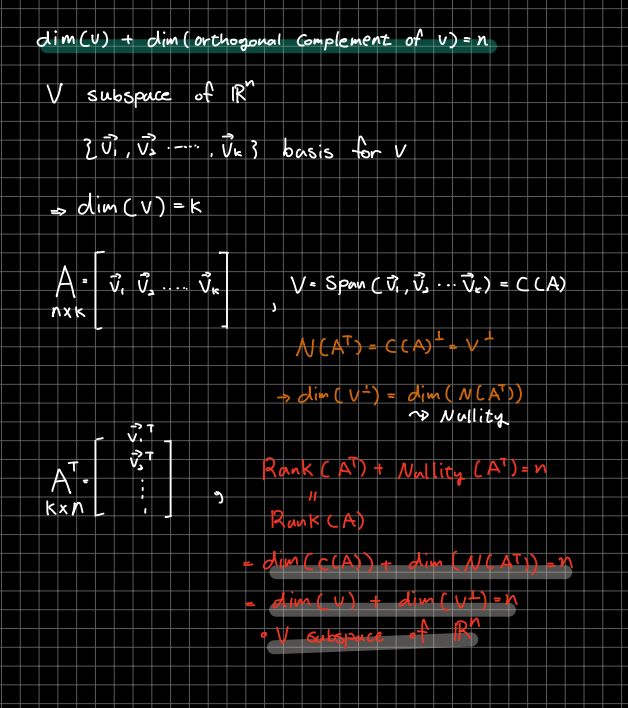 dim(V) + dim(orthogonal complement of V) = n
V subspace of ℝⁿ
{v⃗₁, v⃗₂ ....., v⃗ₖ} basis for V
⇒ dim(V) = k
A = [v⃗₁ v⃗₂ ..... v⃗ₖ] , V = Span(v⃗₁, v⃗₂ ... v⃗ₖ) = C(A)
n×k
N(Aᵀ) = C(A)^⊥ = V^⊥
→ dim(V^⊥) = dim(N(Aᵀ))
⤳ Nullity
v⃗₁ᵀ
v⃗₂ᵀ
Aᵀ = [ ⋮ ] , Rank(Aᵀ) + Nullity(Aᵀ) = n
k×n
"
Rank(A)
= dim(C(A)) + dim(N(Aᵀ)) = n
= dim(V) + dim(V^⊥) = n
• V subspace of ℝⁿ